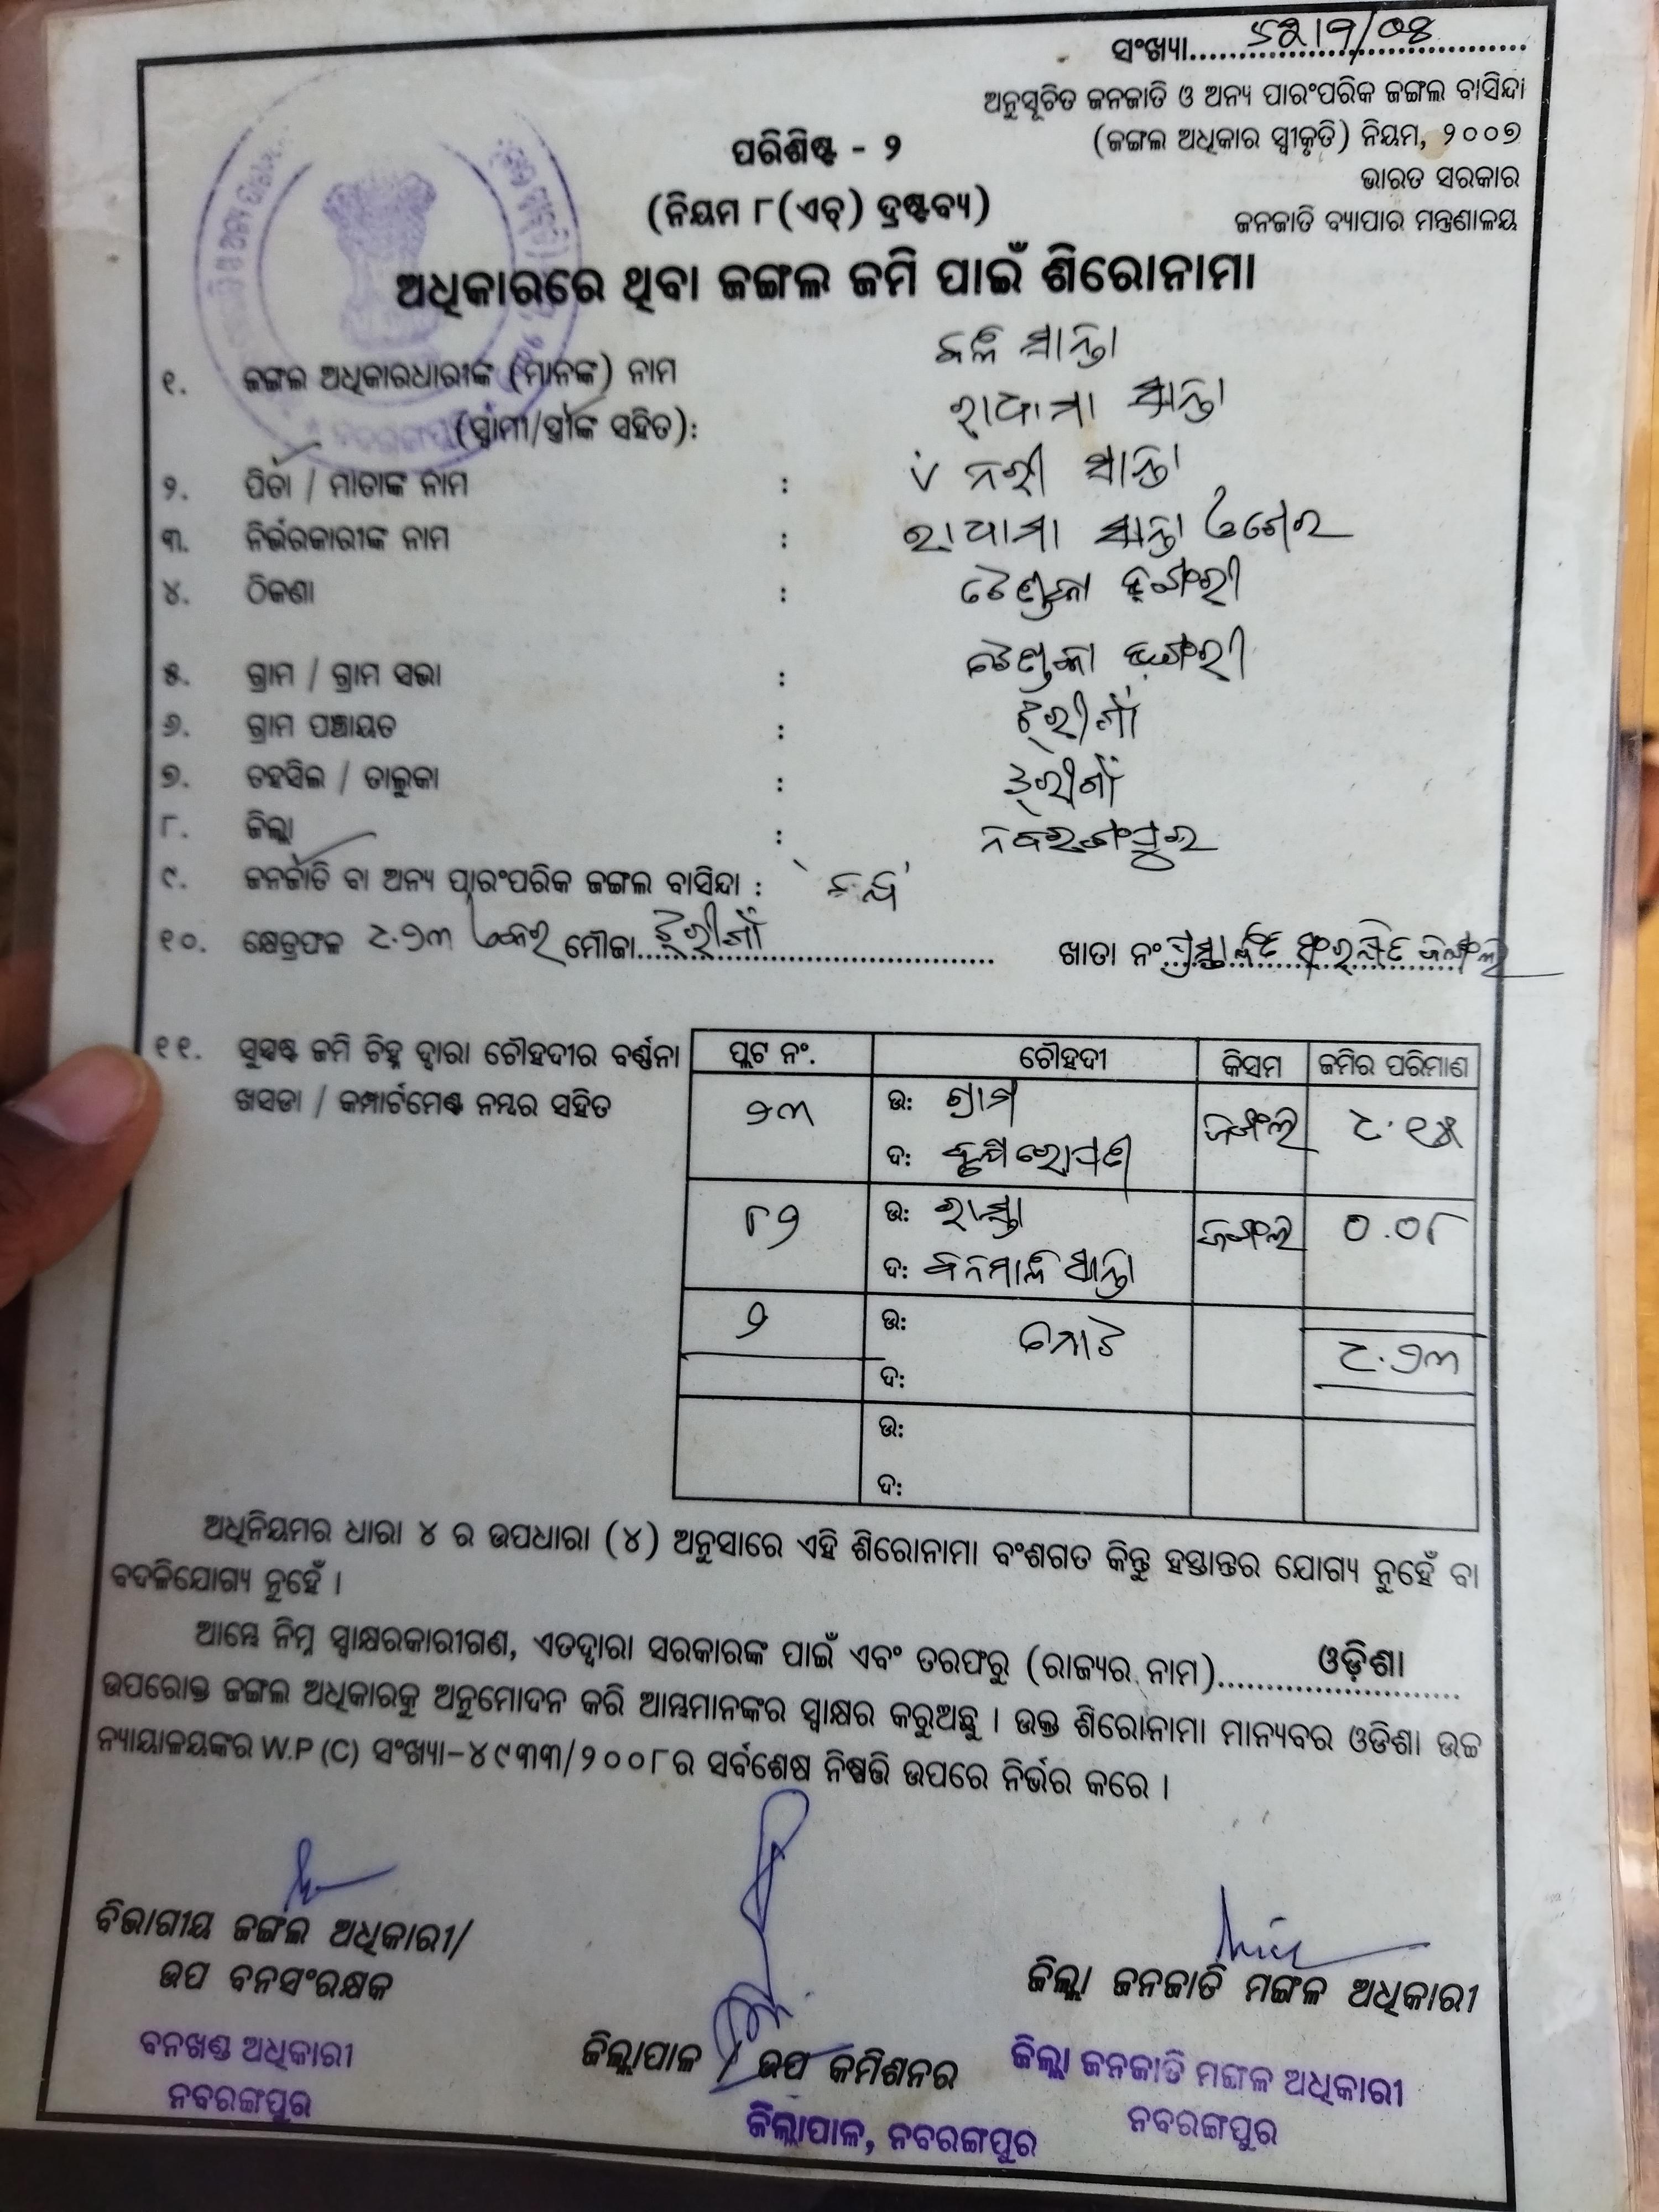 ସଂଖ୍ୟା
ଅନୁସୂଚିତ ଜନଜାତି ଓ ଅନ୍ୟ ପାରଂପରିକ ଜଙ୍ଗଲ ବାସିନ୍ଦା
(ଜଙ୍ଗଲ ଅଧିକାର ସ୍ଵୀକୃତି) ନିୟମ, ୨୦୦୭
ଭାରତ ସରକାର
ଜନଜାତି ବ୍ୟାପାର ମନ୍ତ୍ରଣାଳୟ
ପରିଶିଷ୍ଟ - ୨
(ନିୟମ ୮(ଏଚ୍) ଦ୍ରଷ୍ଟବ୍ୟ)
ଅଧିକାରରେ ଥିବା ଜଙ୍ଗଲ ଜମି ପାଇଁ ଶିରୋନାମା
୧. ଜଙ୍ଗଲ ଅଧିକାରଧାରୀଙ୍କ (ମାନଙ୍କ) ନାମ ସାନ୍ତା
(ସ୍ଵାମୀ/ସ୍ତ୍ରୀଙ୍କ ସହିତ): ସାନ୍ତା
୨. ପିତା / ମାତାଙ୍କ ନାମ : ସାନ୍ତା
୩. ନିର୍ଭରକାରୀଙ୍କ ନାମ : ସାନ୍ତା
୪. ଠିକଣା :
୫. ଗ୍ରାମ / ଗ୍ରାମ ସଭା :
୬. ଗ୍ରାମ ପଞ୍ଚାୟତ : ଝରୀଗାଁ
୭. ତହସିଲ / ତାଲୁକା : ଝରୀଗାଁ
୮. ଜିଲ୍ଲା : ନବରଙ୍ଗପୁର
୯. ଜନଜାତି ବା ଅନ୍ୟ ପାରଂପରିକ ଜଙ୍ଗଲ ବାସିନ୍ଦା :
୧୦. କ୍ଷେତ୍ରଫଳ ୦.୨୩ ଏକର ମୌଜା ଝରୀଗାଁ ଖାତା ନଂ. ପ୍ରସ୍ତାବିତ ସଂରକ୍ଷିତ ଜଙ୍ଗଲ
୧୧. ସୁସ୍ପଷ୍ଟ ଜମି ଚିହ୍ନ ଦ୍ଵାରା ଚୌହଦୀର ବର୍ଣ୍ଣନା
ଖସଡା / କମ୍ପାର୍ଟମେଣ୍ଟ ନମ୍ବର ସହିତ
ପ୍ଲଟ ନଂ. ଚୌହଦୀ କିସମ ଜମିର ପରିମାଣ
୨୩ ଉ: ଗ୍ରାମ ଜଙ୍ଗଲ ୦.୧୫
ଦ: ବୃକ୍ଷରୋପଣ
୮୨ ଉ: ରାସ୍ତା ଜଙ୍ଗଲ ୦.୦୮
ଦ: ବନମାଳି ସାନ୍ତା
୨ ଉ: ମୋଟ ୦.୨୩
ଦ:
ଉ:
ଦ:
ଅଧିନିୟମର ଧାରା ୪ ର ଉପଧାରା (୪) ଅନୁସାରେ ଏହି ଶିରୋନାମା ବଂଶଗତ କିନ୍ତୁ ହସ୍ତାନ୍ତର ଯୋଗ୍ୟ ନୁହେଁ ବା
ବଦଳିଯୋଗ୍ୟ ନୁହେଁ ।
ଆମ୍ଭେ ନିମ୍ନ ସ୍ଵାକ୍ଷରକାରୀଗଣ, ଏତଦ୍ଵାରା ସରକାରଙ୍କ ପାଇଁ ଏବଂ ତରଫରୁ (ରାଜ୍ୟର ନାମ) ଓଡ଼ିଶା
ଉପରୋକ୍ତ ଜଙ୍ଗଲ ଅଧିକାରକୁ ଅନୁମୋଦନ କରି ଆମ୍ଭମାନଙ୍କର ସ୍ଵାକ୍ଷର କରୁଅଛୁ । ଉକ୍ତ ଶିରୋନାମା ମାନ୍ୟବର ଓଡିଶା ଉଚ୍ଚ
ନ୍ୟାୟାଳୟଙ୍କର W.P (C) ସଂଖ୍ୟା-୪୯୩୩/୨୦୦୮ର ସର୍ବଶେଷ ନିଷ୍ପତ୍ତି ଉପରେ ନିର୍ଭର କରେ ।
ବିଭାଗୀୟ ଜଙ୍ଗଲ ଅଧିକାରୀ/
ଉପ ବନସଂରକ୍ଷକ
ବନଖଣ୍ଡ ଅଧିକାରୀ
ନବରଙ୍ଗପୁର
ଜିଲ୍ଲାପାଳ / ଉପ କମିଶନର
ଜିଲ୍ଲାପାଳ, ନବରଙ୍ଗପୁର
ଜିଲ୍ଲା ଜନଜାତି ମଙ୍ଗଳ ଅଧିକାରୀ
ଜିଲ୍ଲା ଜନଜାତି ମଙ୍ଗଳ ଅଧିକାରୀ
ନବରଙ୍ଗପୁର